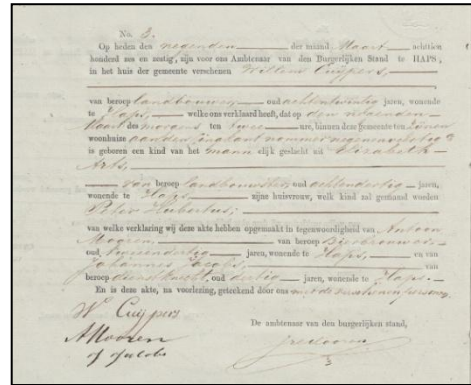 No. 3.
Op heden den negenden der maand Maart achttien
honderd zes en zestig, zijn voor ons Ambtenaar van den Burgerlijken Stand te HAPS,
in het huis der gemeente verschenen Willem Cuijpers,
van beroep landbouwer oud achtentwintig jaren, wonende
te Haps, welke ons verklaard heeft, dat op den negenden
Maart des morgens ten twee ure, binnen deze Gemeente ten zijnen
woonhuize aan den nummer
is geboren een kind van het mann elijk geslacht uit Elisabeth
Arts,
van beroep landbouwster, oud achtendertig jaren,
wonende te Haps zijne huisvrouw, welk kind zal genaamd worden
Peter Hubertus;
van welke verklaring wij deze akte hebben opgemaakt in tegenwoordigheid van Antoon
Mooren van beroep Bierbrouwer
oud tweeendertig jaren, wonende te Haps, en van
Johannes Jacobs, van
beroep dienstknecht, oud dertig jaren, wonende te Haps.
En is deze akte, na voorlezing, geteekend door ons met de
W Cuijpers
De ambtenaar van den burgerlijken stand,
A Mooren
J Jacobs